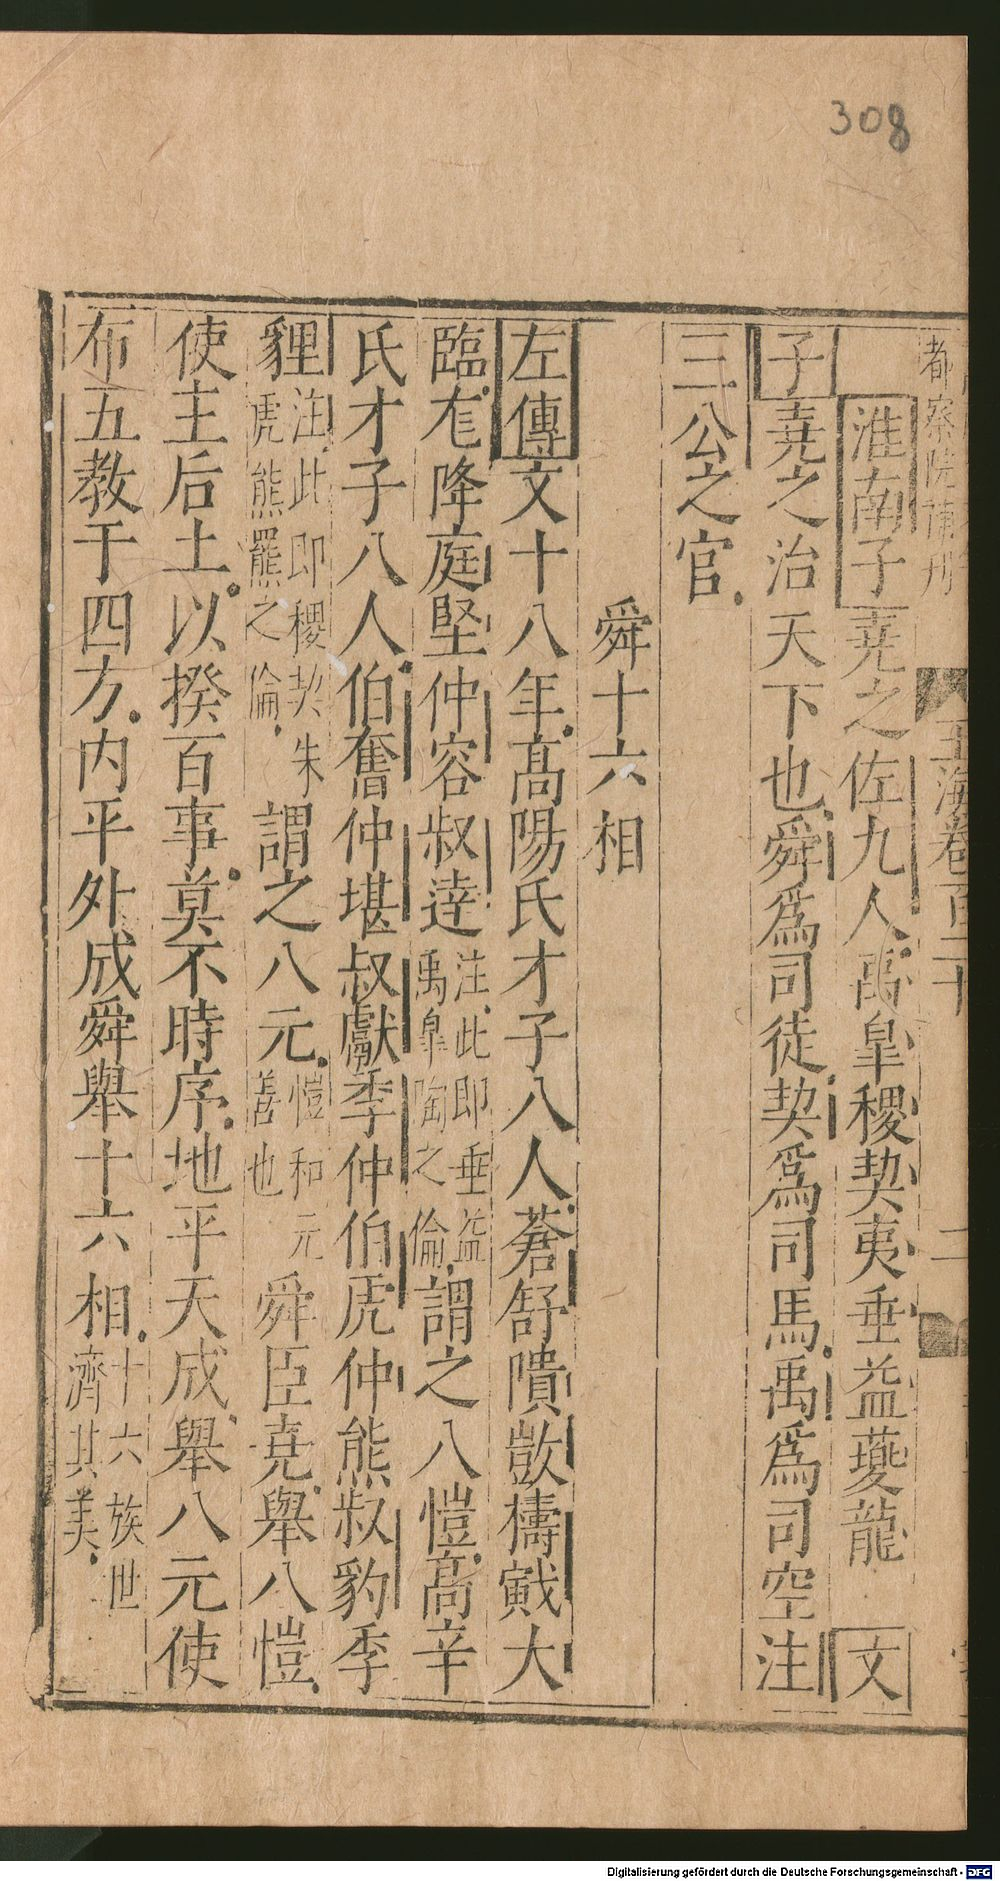 308
都察院補刊
玉海卷百二十
二
淮南子堯之佐九人禹皐稷契夷垂益夔龍 文
子堯之治天下也舜爲司徒契爲司馬禹爲司空注
三公之官
舜十六相
左傳文十八年高陽氏才子八人蒼舒隤敳檮戭大
臨尨降庭堅仲容叔達注此即垂益禹皐陶之倫謂之八愷高辛
氏才子八人伯奮仲堪叔獻季仲伯虎仲熊叔豹季
貍注此即稷契朱虎熊羆之倫謂之八元愷和元善也舜臣堯舉八愷
使主后土以揆百事莫不時序地平天成舉八元使
布五教于四方内平外成舜舉十六相十六族世濟其美
Digitalisierung gefördert durch die Deutsche Forschungsgemeinschaft - DFG